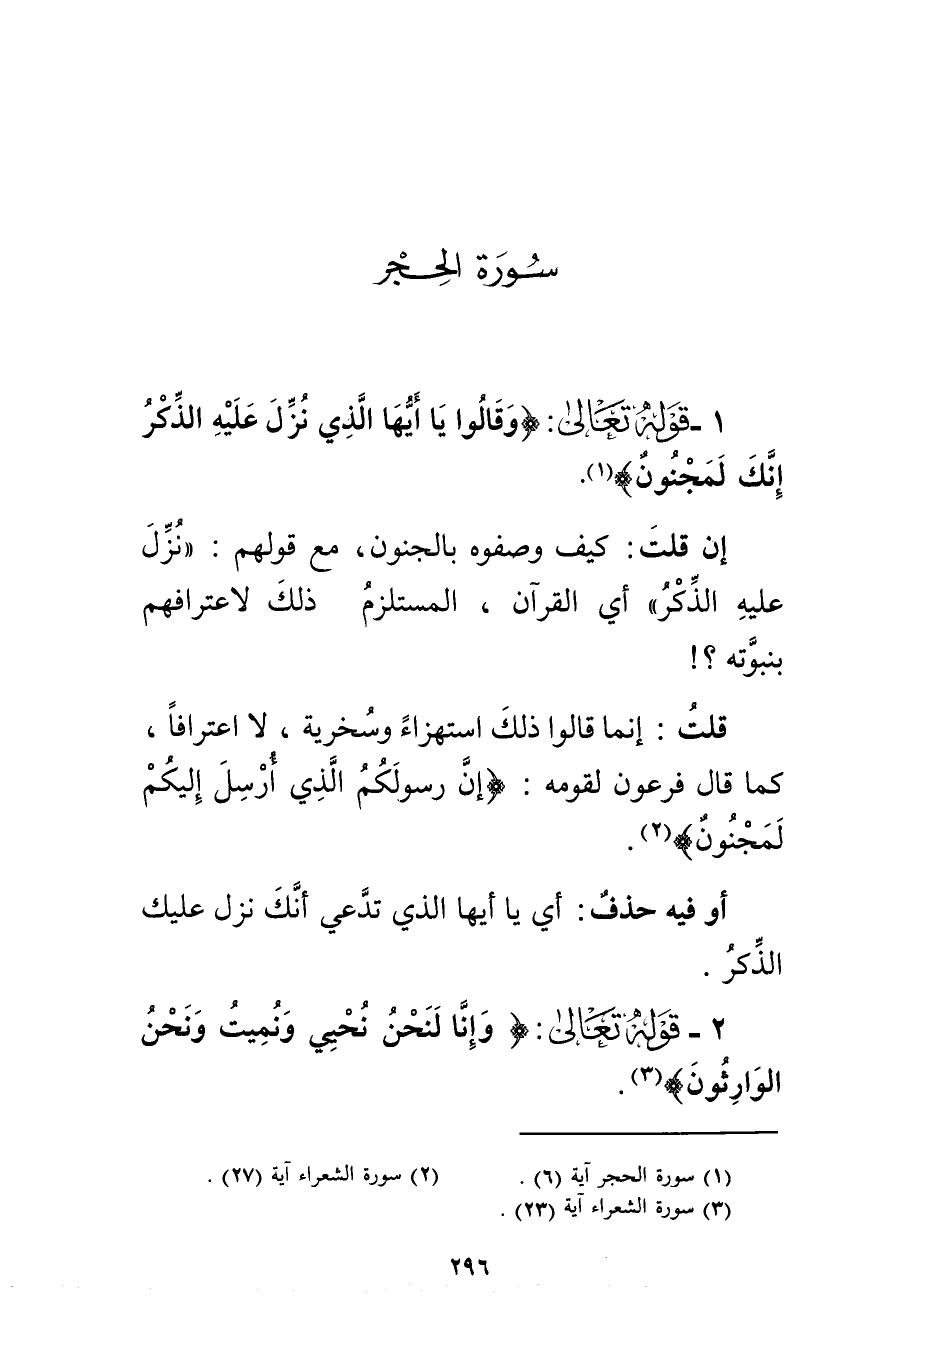 سُورَة الحِجْر
١ - قَوْلُهُ تَعَالىٰ: ﴿وَقَالُوا يَا أَيُّهَا الَّذِي نُزِّلَ عَلَيْهِ الذِّكْرُ
إِنَّكَ لَمَجْنُونٌ﴾(١).
إن قلتَ: كيف وصفوه بالجنون، مع قولهم : «نُزِّلَ
عليهِ الذِّكْرُ» أي القرآن ، المستلزمُ ذلكَ لاعترافهم
بنبوَّته ؟!
قلتُ : إنما قالوا ذلكَ استهزاءً وسُخرية ، لا اعترافاً ،
كما قال فرعون لقومه : ﴿إنَّ رسولَكُمُ الَّذِي أُرْسِلَ إِليكُمْ
لَمَجْنُونٌ﴾(٢) .
أو فيه حذفٌ: أي يا أيها الذي تدَّعي أنَّكَ نزل عليك
الذِّكرُ .
٢ - قَوْلُهُ تَعَالىٰ: ﴿ وَإِنَّا لَنَحْنُ نُحْيِي وَنُمِيتُ وَنَحْنُ
الوَارِثُونَ﴾(٣) .
(١) سورة الحجر آية (٦) . (٢) سورة الشعراء آية (٢٧) .
(٣) سورة الشعراء آية (٢٣) .
٢٩٦